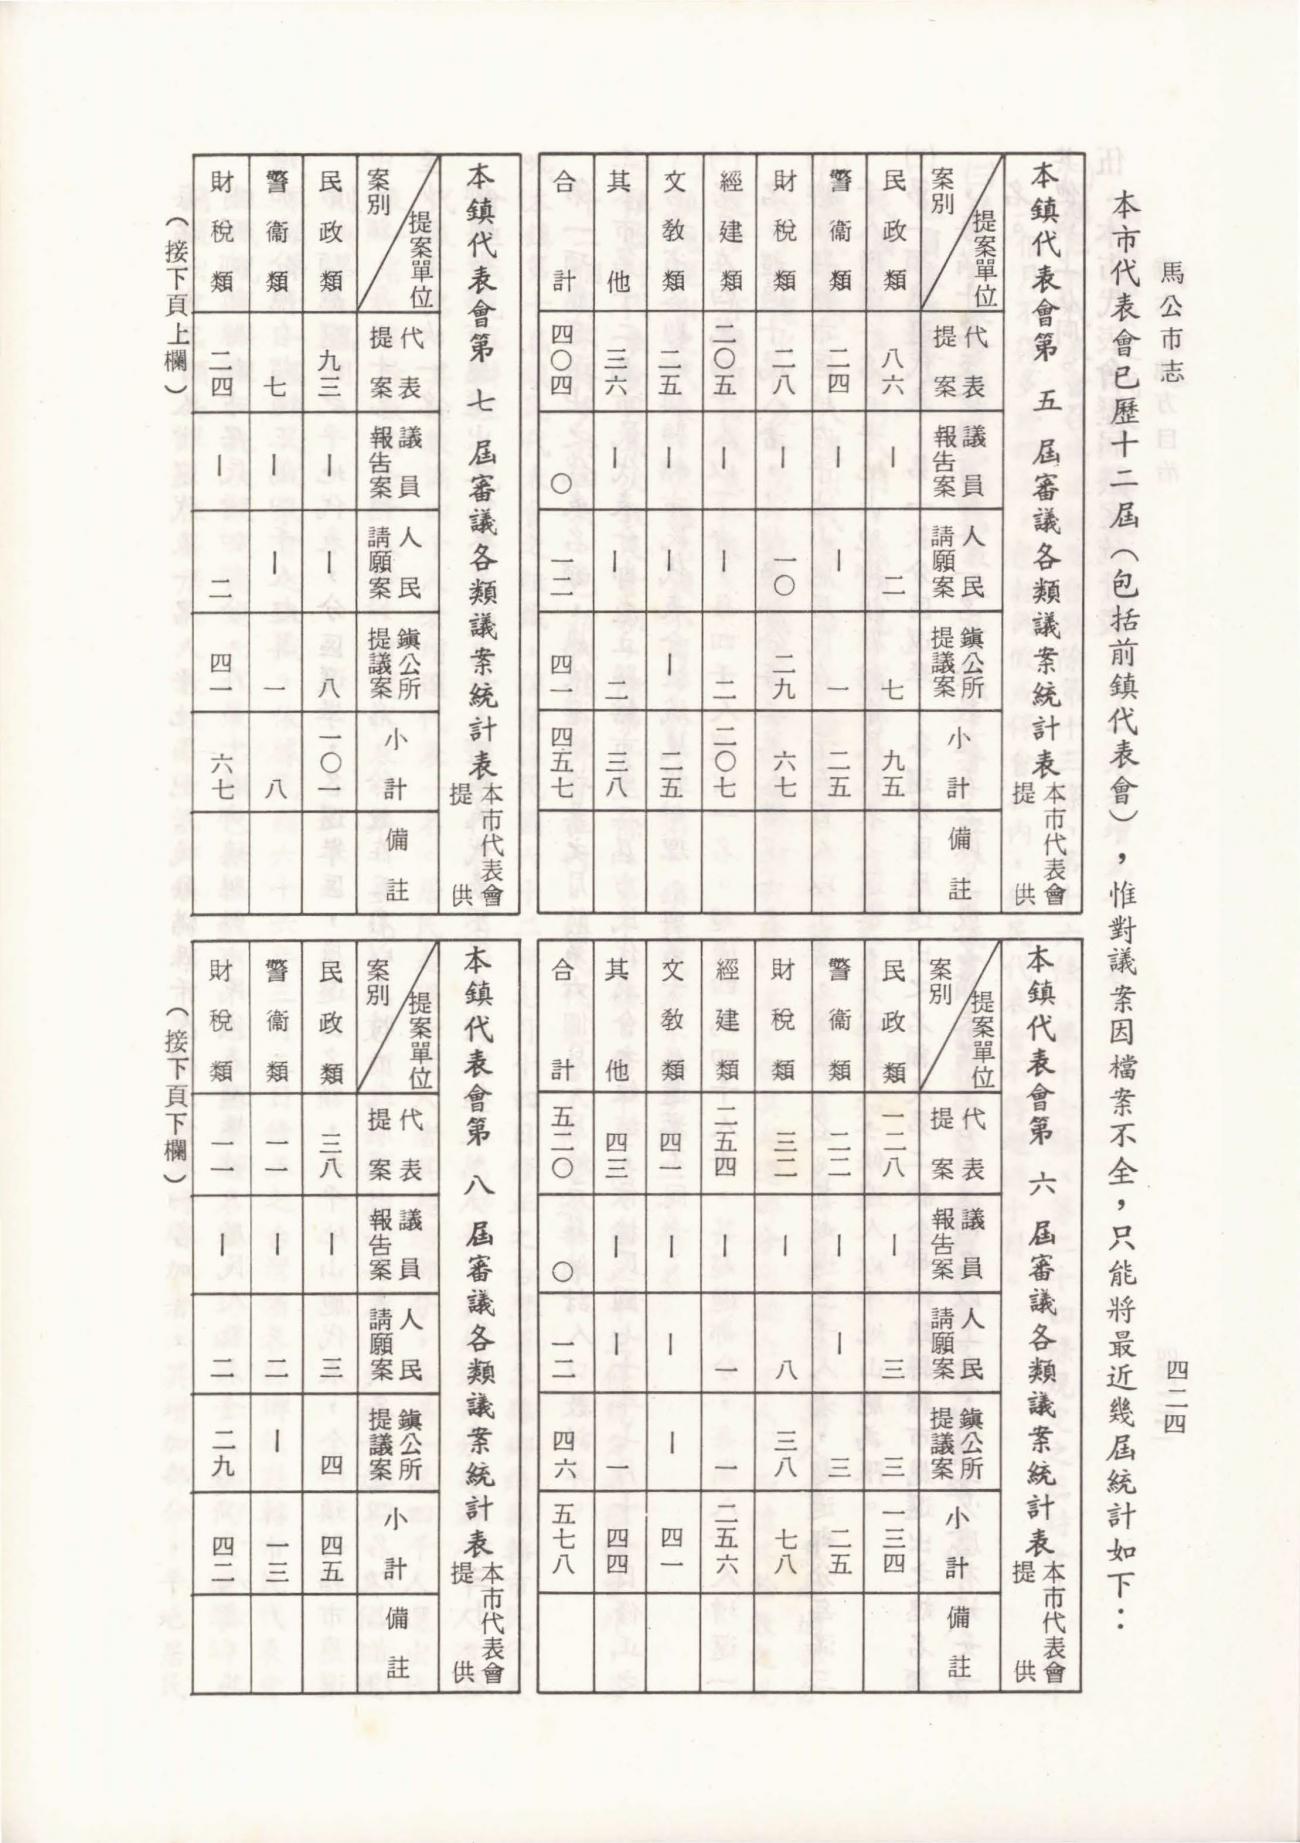 馬公市志
四二四
本市代表會已歷十二屆（包括前鎮代表會），惟對議案因檔案不全，只能將最近幾屆統計如下：
本鎮代表會第 五 屆審議各類議案統計表 本市代表會提供
提案單位 案別 代表提案 議員報告案 人民請願案 鎮公所提議案 小計 備註
民政類 八六 ｜ 二 七 九五
警衞類 二四 ｜ ｜ 一 二五
財稅類 二八 ｜ 一〇 二九 六七
經建類 二〇五 ｜ ｜ 二 二〇七
文教類 二五 ｜ ｜ ｜ 二五
其他 三六 ｜ ｜ 二 三八
合計 四〇四 〇 一二 四一 四五七
本鎮代表會第 六 屆審議各類議案統計表 本市代表會提供
提案單位 案別 代表提案 議員報告案 人民請願案 鎮公所提議案 小計 備註
民政類 一二八 ｜ 三 三 一三四
警衞類 二二 ｜ ｜ 三 二五
財稅類 三二 ｜ 八 三八 七八
經建類 二五四 ｜ 一 一 二五六
文教類 四一 ｜ ｜ ｜ 四一
其他 四三 ｜ ｜ 一 四四
合計 五二〇 〇 一二 四六 五七八
本鎮代表會第 七 屆審議各類議案統計表 本市代表會提供
提案單位 案別 代表提案 議員報告案 人民請願案 鎮公所提議案 小計 備註
民政類 九三 ｜ ｜ 八 一〇一
警衞類 七 ｜ ｜ 一 八
財稅類 二四 ｜ 二 四一 六七
（接下頁上欄）
本鎮代表會第 八 屆審議各類議案統計表 本市代表會提供
提案單位 案別 代表提案 議員報告案 人民請願案 鎮公所提議案 小計 備註
民政類 三八 ｜ 三 四 四五
警衞類 一一 ｜ 二 ｜ 一三
財稅類 一一 ｜ 二 二九 四二
（接下頁下欄）